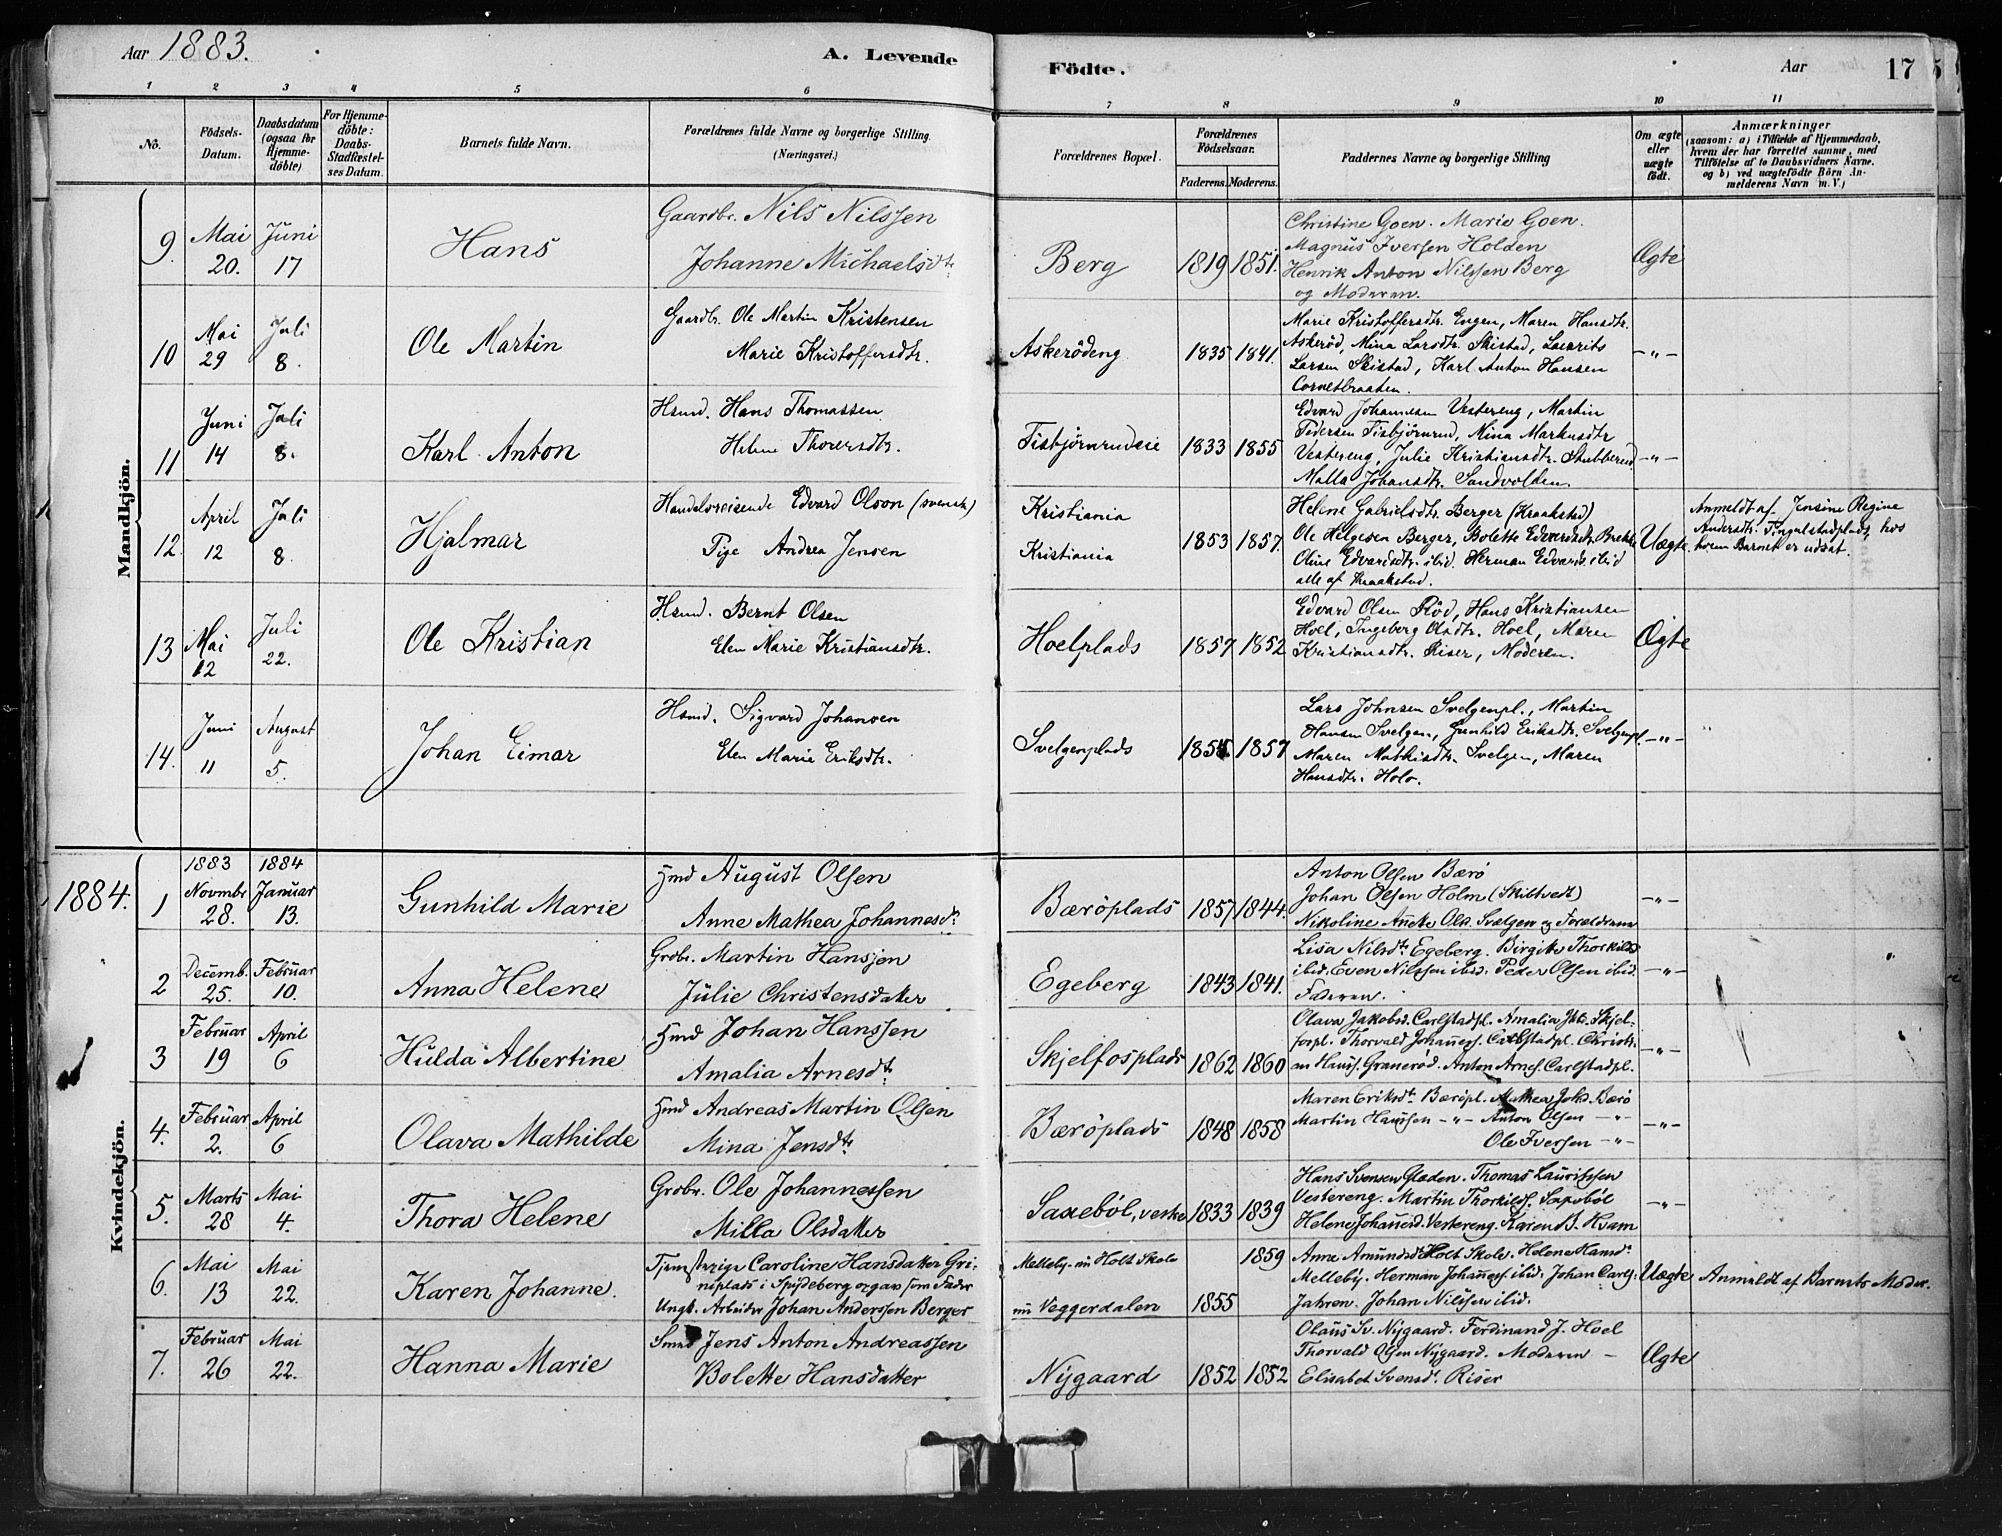 Aar 1883.
A. Levende
Födte.
Aar
17
1 2 3 4 5 6 7 8 9 10 11
No.
Födsels-Datum.
Daabsdatum (ogsaa for Hjemme-döbte)
For Hjemme-döbte: Daabs-Stadfæstel-ses Datum.
Barnets fulde Navn.
Forældrenes fulde Navne og borgerlige Stilling.
(Næringsvei.)
Forældrenes Bopæl.
Forældrenes Födselsaar.
Faderens. Moderens.
Faddernes Navne og borgerlige Stilling
Om ægte eller uægte födt.
Anmærkninger
(saasom: a) i Tilfælde af Hjemmedaab,
hvem der har forrettet samme, med
Tilföielse af to Daabsvidners Navne,
og b) ved uægtefödte Börn An-
melderens Navn m. V.)
Mandkjön.
9. Mai 20. Juni 17 Hans
Gaardbr. Nils Nilssen
Johanne Michaelsdtr
Berg 1819 1851.
Christine Goen. Marie Goen.
Magnus Iversen Holden
Henrik Anton Nilssen Berg
og Moderen.
Ægte
10 Mai 29 Juli 8. Ole Martin
Gaardbr. Ole Martin Kristensen
Marie Kristoffersdtr.
Askerödeng 1835 1841.
Marie Kristoffersdtr. Engen, Maren Hansdtr.
Askeröd, Mina Larsdtr. Skistad, Laurits
Larsen Skistad, Karl Anton Hansen
Cornetbraaten.
-"-
11 Juni 14 Juli 8. Karl Anton
Hsmd. Hans Thomassen
Helene Thoversdtr.
Tisbjörnrudeie 1833 1855
Edvard Johannesen Vestereng, Martin
Pedersen Tisbjörnrud, Nina Markusdtr
Vestereng, Julie Kristiansdtr. Stubberud
Malla Johansdtr. Sandvolden.
-"-
12. April 12 Juli 8 Hjalmar
Handelsreisende Edvard Olson (svensk)
Pige Andrea Jensen
Kristiania
Kristiania
1853 1857.
Helene Gabrielsdtr. Berger (Kraakstad)
Ole Helgesen Berger, Bolette Edvardsdtr.
Oline Edvardsdtr. ibid. Herman Edvards. ibid
alle af Kraakstad.
Uægte.
Anmeldt af Jensine Regine
Andersdtr. Tingulstadplads, hos
hvem Barnet er udsat.
13 Mai 12 Juli 22. Ole Kristian
Hsmd. Bernt Olsen
Elen Marie Kristiansdtr.
Hoelplads 1857 1852
Edvard Olsen Röd, Hans Kristiansen
Hoel, Ingeborg Olsdtr. Hoel, Maren
Kristiansdtr. Riser, Moderen.
Ægte
14. Juni 11 August 5. Johan Eimar
Hsmd. Sigvard Johansen
Elen Marie Eriksdtr.
Svelgenplads 1857
Lars Johnsen Svelgenpl., Martin
Hansen Svelgen, Gunhild Eriksdtr. Svelgenpl
Maren Mathisdtr. Svelgen, Maren
Hansdtr. Holo.
-"-
1884.
Kvindekjön.
1 1883 Novmbr 28. 1884 Januar 13. Gunhild Marie
Hmd August Olsen
Anne Mathea Johannesdtr
Bæröplads 1857 1844.
Anton Olsen Bærö
Johan Olsen Holm (Skiltvedt)
Nikoline Olsd. Svelgen og Forældrene
-"-
2 Decemb. 25. Februar 10. Anna Helene
Grdbr. Martin Hansen
Julie Christensdatter
Egeberg 1843 1841.
Lisa Nilsdtr Egeberg. Birgitte Thorkilds
ibid. Even Nilssen ibid. Peder Olsen ibid.
Faderen.
-"-
3 Februar 19 April 6 Hulda Albertine
Hmd Johan Hanssen
Amalia Arnesdtr
Skjelfosplads 1862 1860
Olava Jakobsd. Carlstadpl. Amalia Skjel-
fospl. Thorvald Johannes. Carlstadpl. Christi-
an Hanss. Graneröd. Anton Arnes. Carlstadpl.
-"-
4. Februar 2. April 6 Olava Mathilde
Hmd Andreas Martin Olsen
Mina Jensdtr
Bæröplads 1848 1858
Maren Eriksdtr Bæröpl. Mathea Johs. Bærö
Martin Hanssen -"- Anton Olsen -"-
Ole Iversen -"-
-"-
5. Marts 28 Mai 4. Thora Helene
Grdbr. Ole Johannessen
Milla Olsdatter
Saxeböl, 1833 1839
Hans Svensen Glæden. Thomas Lauritssen
Vestereng. Martin Thorkilds.
Helene Johannesd. Vestereng. Karen B. Hvam
-"-
6. Mai 13 Mai 22. Karen Johanne.
Tjenestepige Caroline Hansdatter Gri-
niplads i Spydeberg opgav som Fader
Ungk. Arbeider Johan Anderssen Berger
Melleby nu Holt Skole
nu Veggerdalen
1855 1859
Anne Amundsd. Holt Skole. Helene Hansd.
Melleby. Herman Johanness. ibid. Johan Carls.
Jahren. Johan Nilssen ibid.
Uægte
Anmeldt af Barnets Moder.
7. Februar 26 Mai 22. Hanna Marie
Smed Jens Anton Andreassen
Bolette Hansdatter
Nygaard 1852 1852
Olaus Sv. Nygaard. Ferdinand J. Hoel
Thorvald Olsen Nygaard. Moderen -
Elisabet Svensd. Riser
Ægte